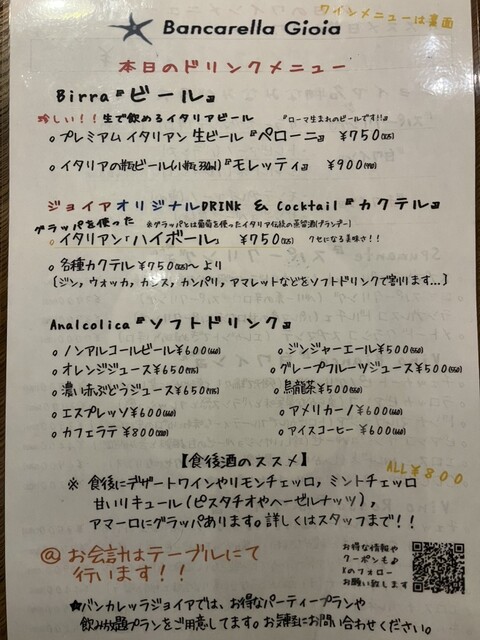 ワインメニューは裏面
Bancarella Gioia
本日のドリンクメニュー
Birra『ビール』
珍しい!!生で飲めるイタリアビール 『ローマ生まれのビールです!!』
○プレミアムイタリアン生ビール『ペローニ』 ¥750(825)
○イタリアの瓶ビール(小瓶330ml)『モレッティ』 ¥900(990)
ジョイアオリジナルDRINK & Cocktail『カクテル』
グラッパを使った ※グラッパとは葡萄を使ったイタリア伝統の蒸留酒(ブランデー)
○イタリアン「ハイボール」 ¥750(825) クセになる美味さ!!
○各種カクテル¥750(825)〜より
[ジン,ウォッカ,カシス,カンパリ,アマレットなどをソフトドリンクで割ります...]
Analcolica『ソフトドリンク』
○ノンアルコールビール¥600(660) ○ジンジャーエール¥500(550)
○オレンジジュース¥650(715) ○グレープフルーツジュース¥500(550)
○濃い赤ぶどうジュース¥650(715) ○烏龍茶¥500(550)
○エスプレッソ¥600(660) ○アメリカーノ¥600(660)
○カフェラテ¥800(880) ○アイスコーヒー¥600(660)
【食後酒のススメ】
ALL¥800
※ 食後にデザートワインやリモンチェッロ,ミントチェッロ
甘いリキュール(ピスタチオやヘーゼルナッツ),
アマーロにグラッパあります。詳しくはスタッフまで!!
@お会計はテーブルにて
行います!!
お得な情報や
クーポンも♪
フォロー
お願い致します
★バンカレッラジョイアでは、お得なパーティープランや
飲み放題プランをご用意してます。お気軽にお問い合わせください。